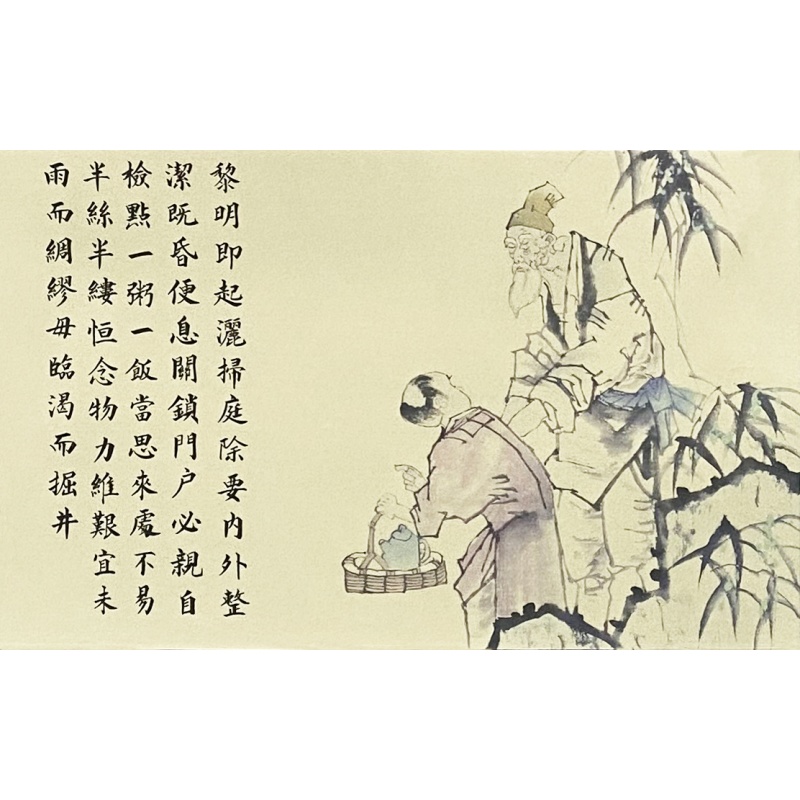 黎明即起灑掃庭除要内外整
潔既昏便息關鎖門户必親自
檢點一粥一飯當思來處不易
半絲半縷恒念物力維艱宜未
雨而綢繆毋臨渴而掘井